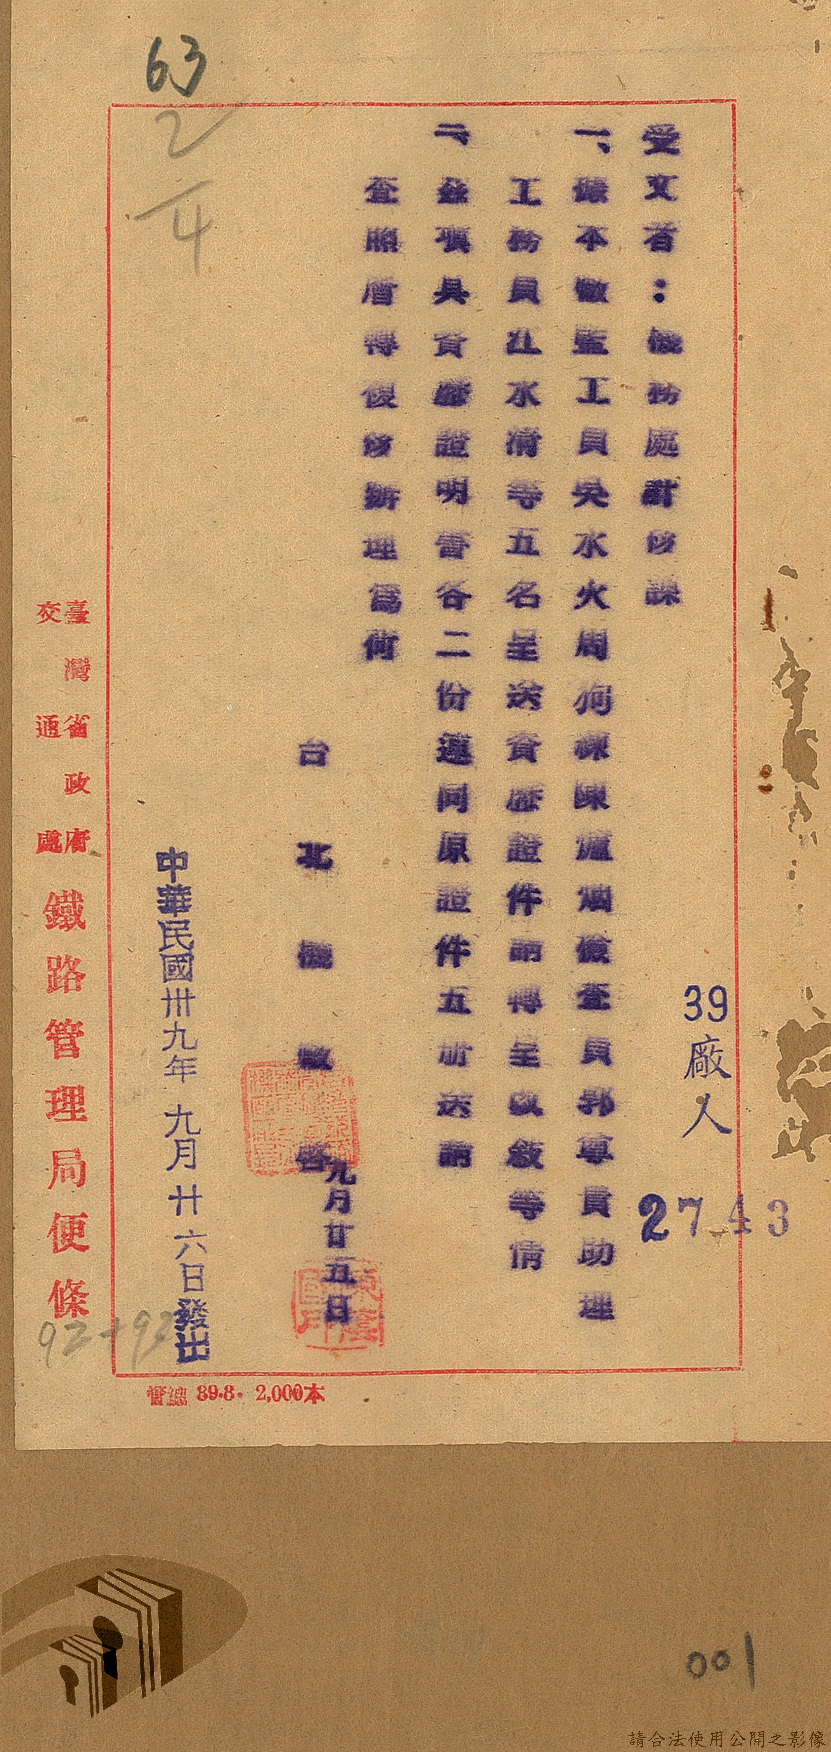 63
2/4
39廠人
2743
受文者：機務處計修課
一、據本廠監工員吳水火周狗練陳爐烟檢查員郭尊貫助理
工務員江水清等五名呈送資歷證件請轉呈改敘等情
二、茲填具資歷證明書各二份連同原證件五份送請
查照層轉俊修辦理為荷
台北機廠啓
九月廿五日
中華民國卅九年九月廿六日發出
臺灣省政府
交通處
鐵路管理局便條
92+93
管總 39.8. 2,000本
001
請合法使用公開之影像